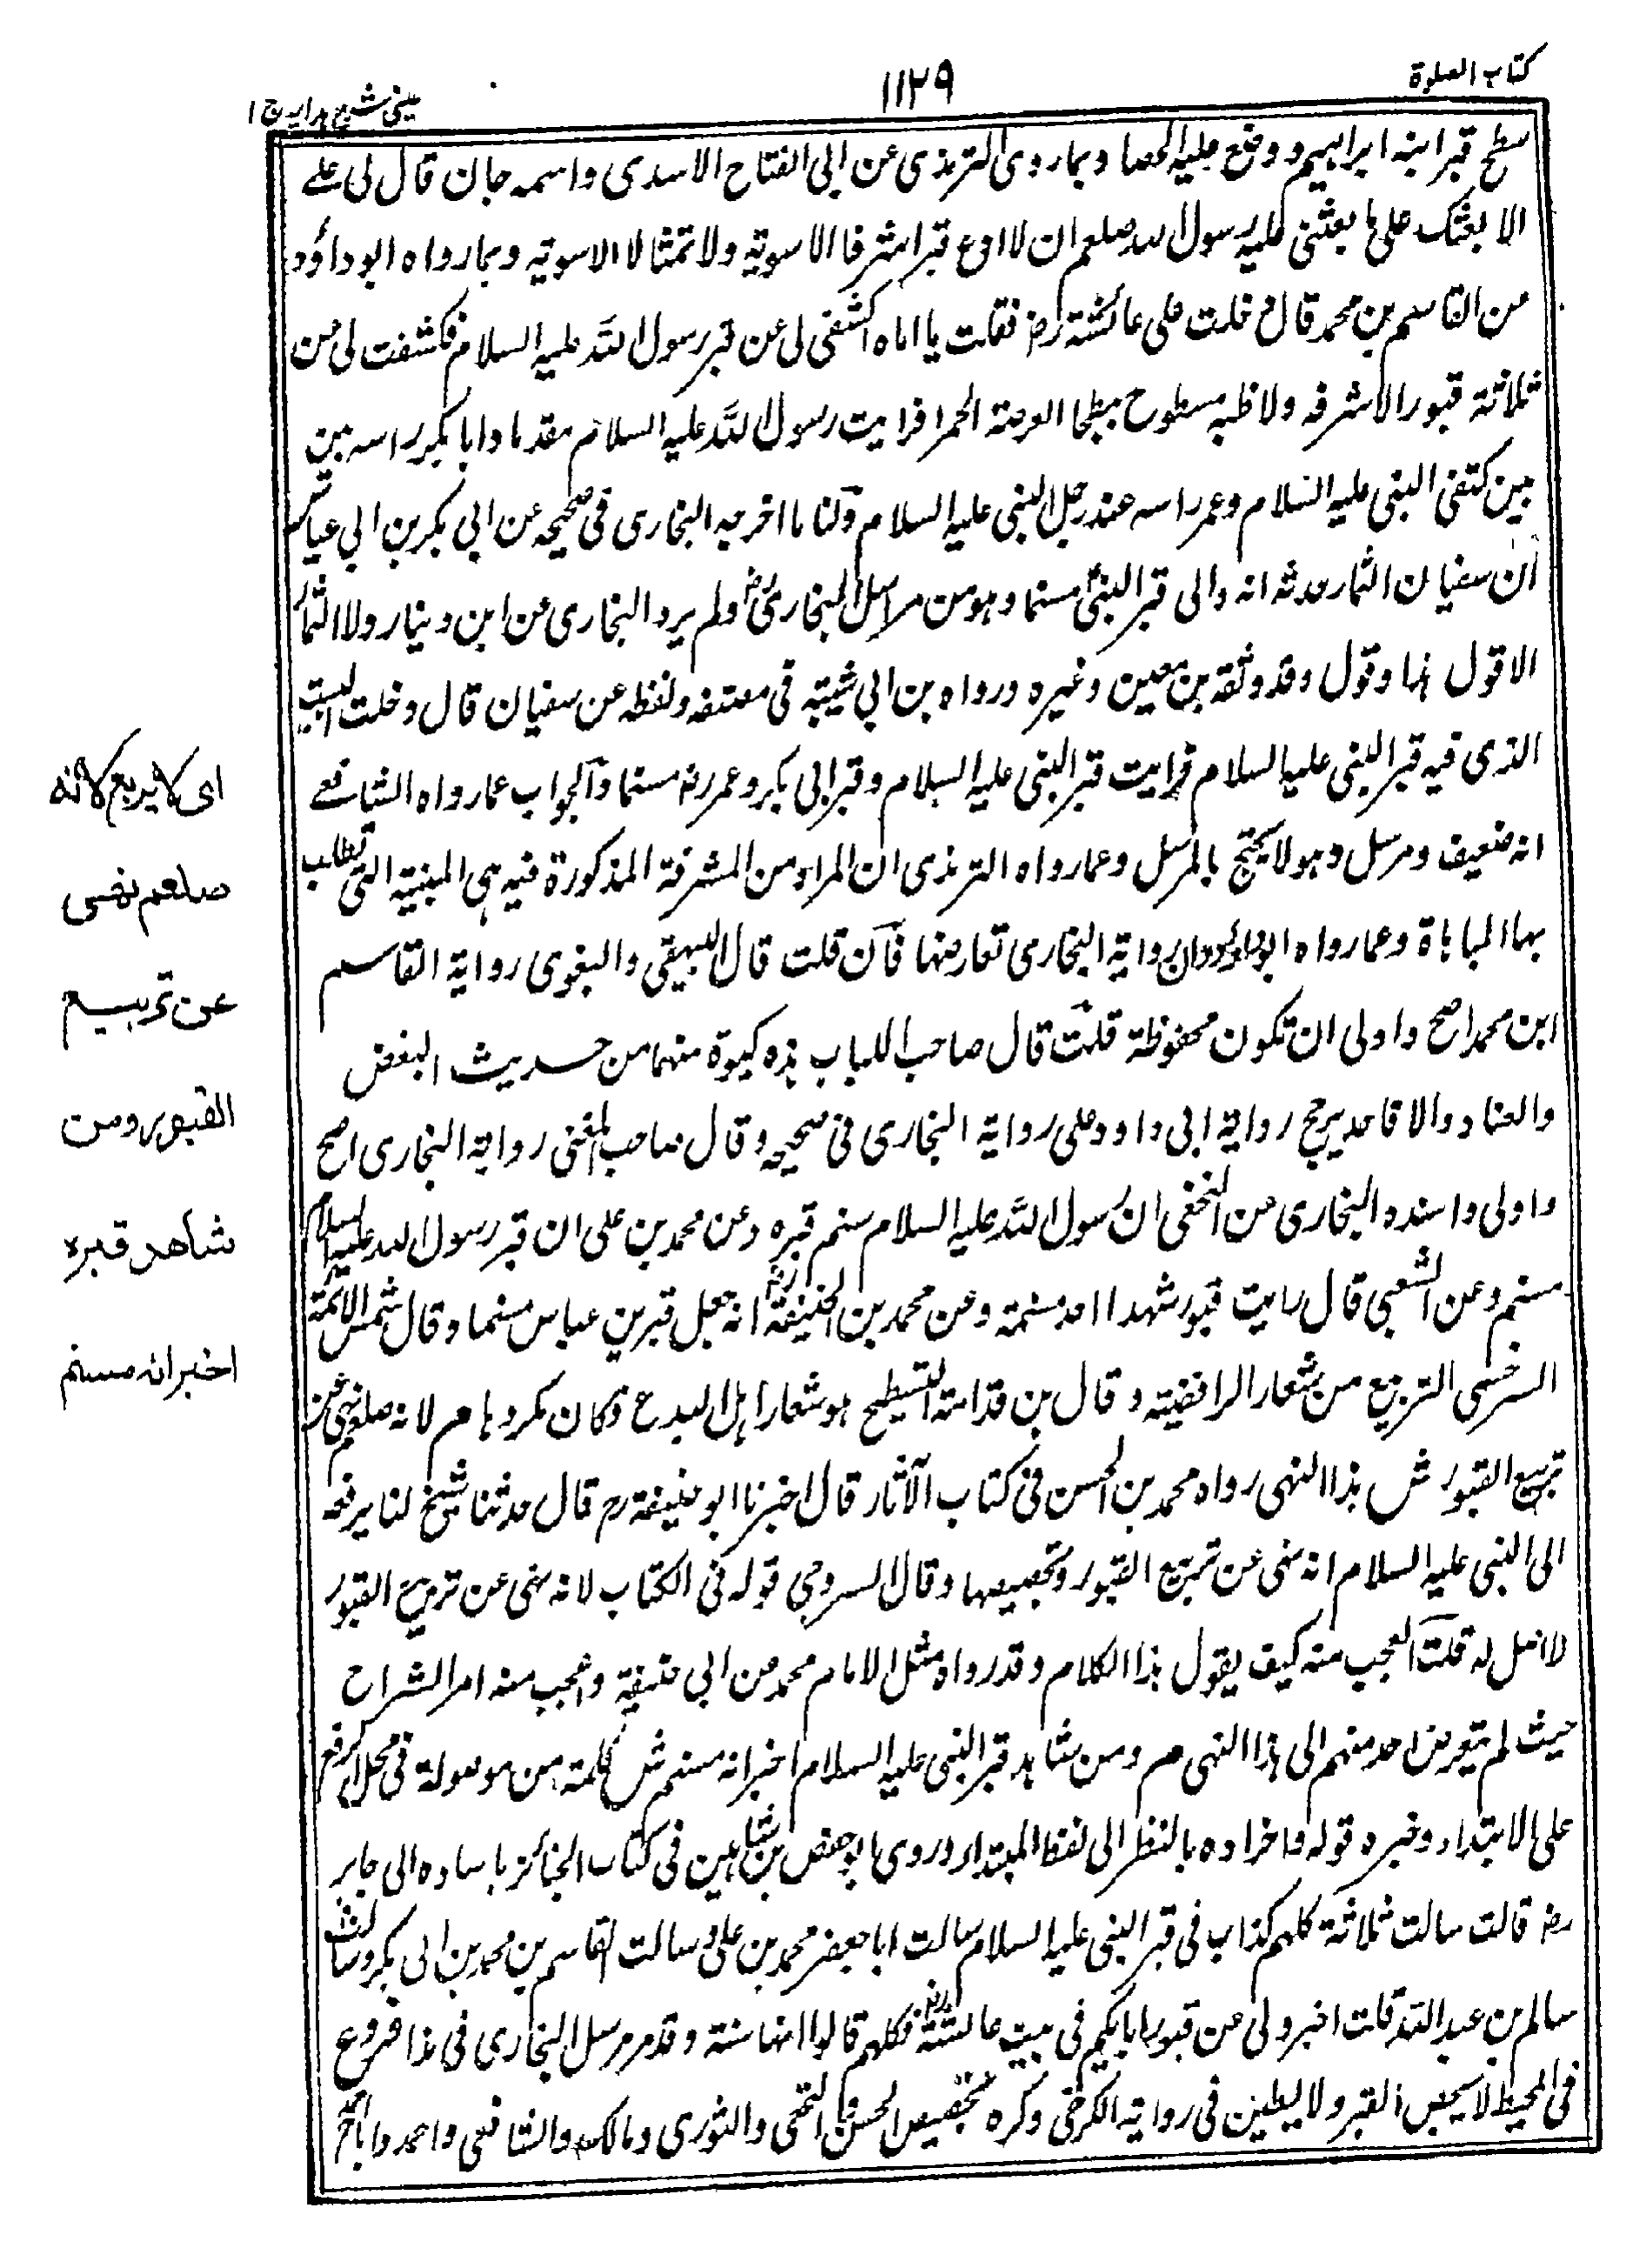 كتاب الصلوة
١١٢٩
عينى شرح هدايه ج ١
سطح قبر ابنه ابراهيم ووضع عليه الحصا وبما روى الترمذى عن ابى الفتاح الاسدى واسمه حبان قال لى على
الا ابعثك على ما بعثنى عليه رسول الله صلعم ان لا ادع قبرا مشرفا الا سويته ولا تمثالا الا سويته وبما رواه ابو داؤد
عن القاسم بن محمد قال دخلت على عائشة رض فقلت يا اماه اكشفى لى عن قبر رسول الله عليه السلام فكشفت لى عن
ثلاثة قبور لا مشرفه ولا لاطيه مسطوح ببطحا العرصة الحمرا فرايت رسول الله عليه السلام مقدما وابا بكر راسه بين
بين كتفى النبى عليه السلام وعمر راسه عند رجل النبى عليه السلام ولنا ما اخرجه البخارى فى صحيحه عن ابى بكر بن ابى عياش
ان سفيان التمار حدثه انه راى قبر النبى مسنما وهو من مراسيل البخارى رض ولم يرو البخارى عن ابن دينار ولا التمار
الا قول لها وقول وقد وثقه بن معين وغيره ورواه بن ابى شيبة فى مصنفه ولفظه عن سفيان قال دخلت البيت
الذى فيه قبر النبى عليه السلام فرايت قبر النبى عليه السلام وقبر ابى بكر وعمر رض مسنما والجواب عما رواه الشافعے
انه ضعيف ومرسل وهو لا يحتج بالمرسل وعما رواه الترمذى ان المراد من المشرفة المذكورة فيه هى المبنية التى تطلب
بها المباهاة وعما رواه ابو داود ان رواية البخارى تعارضها فان قلت قال البيهقى والبغوى رواية القاسم
ابن محمد اصح واولى ان تكون محفوظة قلت قال صاحب اللباب هذه كبوة منهما من حديث البغض
والعناد والا فاحد يرجح رواية ابى داود على رواية البخارى فى صحيحه وقال صاحب المغنى رواية البخارى اصح
واولى واسنده البخارى عن النخعى ان رسول الله عليه السلام سنم قبره وعن محمد بن على ان قبر رسول الله عليه السلام
مسنم وعن الشعبى قال رايت قبور شهدا احد مسنمة وعن محمد بن الحنيفة رض انه جعل قبر بن عباس مسنما وقال شمس الائمة
السرخسى التربيع من شعار الرافضية وقال بن قدامة التسطيح هو شعار اهل البدع وكان مكروها م لانه صلعم نهى عن
تربيع القبور ش هذا النهى رواه محمد بن الحسن فى كتاب الآثار قال اخبرنا ابو حنيفة رح قال حدثنا شيخ لنا يرفعه
الى النبى عليه السلام انه نهى عن تربيع القبور وتجصيصها وقال السروجى قوله فى الكتاب لانه نهى عن تربيع القبور
لا اصل له قلت العجب منه كيف يقول هذا الكلام وقد رواه مثل الامام محمد عن ابى حنيفة واعجب منه امر الشراح
حيث لم يتعرض احد منهم الى هذا النهى م ومن شاهد قبر النبى عليه السلام اخبر انه مسنم ش كلمة من موصولة فى محل الرفع
على الابتداء وخبره قوله واخراده بالنظر الى لفظ المبتدا وروى ابو حفص بن شاهين فى كتاب الجنائز باسناده الى جابر
رض قالت سالت ثلاثة كلهم كذاب فى قبر النبى عليه السلام سالت ابا جعفر محمد بن على وسالت القاسم بن محمد بن ابى بكر وسالت
سالم بن عبد الله قلت اخبرونى عن قبور ابايكم فى بيت عائشة رض فكلهم قالوا انها سنة وقد مر مرسل البخارى فى هذا فروع
فى المحيط لا يجصص القبر ولا يطين فى رواية الكرخى وكره تجصيصه الحسن والنخعى والثورى ومالك والشافعى واحمد واباح
اى لا يربع لانه
صلعم نهى
عن تربيع
القبور ومن
شاهد قبره
اخبر انه مسنم